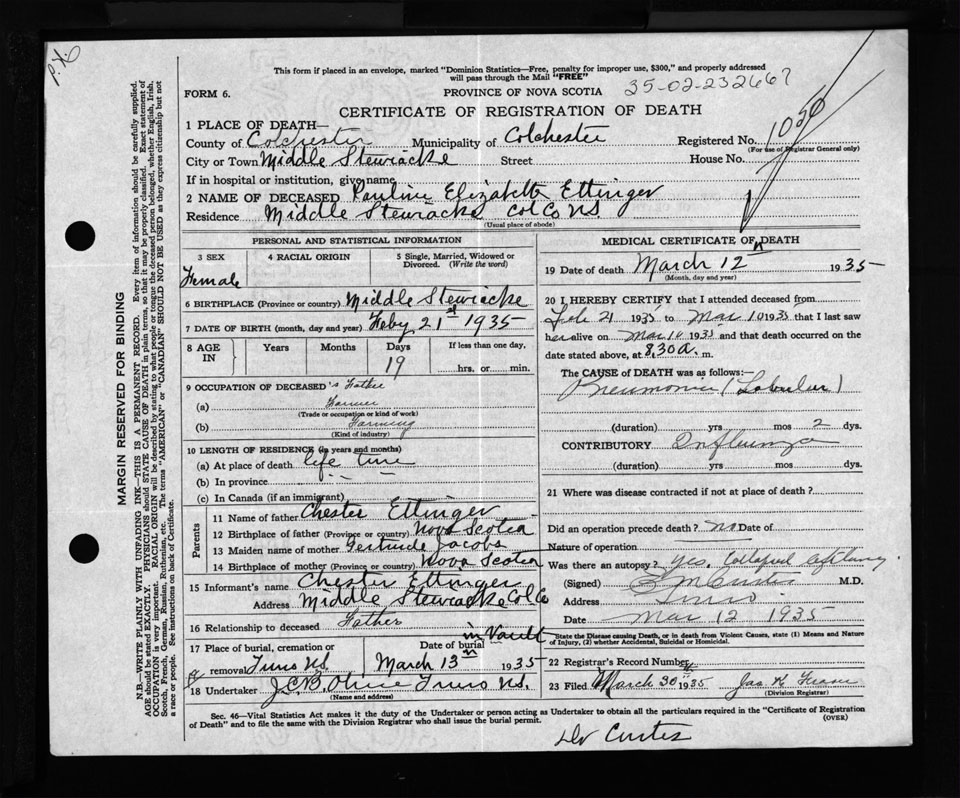 P.X.O
This form if placed in an envelope, marked "Dominion Statistics—Free, penalty for improper use, $300," and properly addressed
will pass through the Mail "FREE"
35-02-232667
FORM 6.
PROVINCE OF NOVA SCOTIA
CERTIFICATE OF REGISTRATION OF DEATH
1 PLACE OF DEATH—
County of Colchester Municipality of Colchester Registered No. 1050
(For use of Registrar General only)
City or Town Middle Stewiacke Street House No.
If in hospital or institution, give name
2 NAME OF DECEASED Pauline Elizabeth Ettinger
Residence Middle Stewiacke Col Co NS
(Usual place of abode)
PERSONAL AND STATISTICAL INFORMATION
3 SEX 4 RACIAL ORIGIN 5 Single, Married, Widowed or
Divorced. (Write the word)
Female
6 BIRTHPLACE (Province or country) Middle Stewiacke
7 DATE OF BIRTH (month, day and year) Feby 21st 1935
8 AGE IN Years Months Days If less than one day,
19 hrs. or min.
9 OCCUPATION OF DECEASED's Father
(a) Farmer
(Trade or occupation or kind of work)
(b) Farming
(Kind of industry)
10 LENGTH OF RESIDENCE (in years and months)
(a) At place of death life time
(b) In province
(c) In Canada (if an immigrant)
Parents
11 Name of father Chester Ettinger
12 Birthplace of father (Province or country) Nova Scotia
13 Maiden name of mother Gertrude Jacobs
14 Birthplace of mother (Province or country) Nova Scotia
15 Informant's name Chester Ettinger
Address Middle Stewiacke Col Co
16 Relationship to deceased Father
in Vault
17 Place of burial, cremation Date of burial
or removal Truro NS. March 13th 1935
18 Undertaker J.C.B. Olive Truro NS.
(Name and address)
MEDICAL CERTIFICATE OF DEATH
19 Date of death March 12th 1935
(Month, day and year)
20 I HEREBY CERTIFY that I attended deceased from
Feb 21 1935 to Mar 10 1935 that I last saw
her alive on Mar 10 1935 and that death occurred on the
date stated above, at 8.30 a. m.
The CAUSE of DEATH was as follows:—
Pneumonia (Lobular)
(duration) yrs mos 2 dys.
CONTRIBUTORY Influenza
(duration) yrs mos dys.
21 Where was disease contracted if not at place of death?
Did an operation precede death? no Date of
Nature of operation
Was there an autopsy? yes.
(Signed) M.D.
Address Truro
Date Mar 12 1935
State the Disease causing Death, or in death from Violent Causes, state (1) Means and Nature
of Injury, (2) whether Accidental, Suicidal or Homicidal.
22 Registrar's Record Number
23 Filed March 30th 1935 Jas K Fraser
(Division Registrar)
Sec. 46—Vital Statistics Act makes it the duty of the Undertaker or person acting as Undertaker to obtain all the particulars required in the "Certificate of Registration
of Death" and to file the same with the Division Registrar who shall issue the burial permit.
(OVER)
Dr Curtis
MARGIN RESERVED FOR BINDING
N.B.—WRITE PLAINLY WITH UNFADING INK—THIS IS A PERMANENT RECORD. Every item of information should be carefully supplied.
AGE should be stated EXACTLY. PHYSICIANS should STATE CAUSE OF DEATH in plain terms, so that it may be properly classified. Exact statement of
OCCUPATION is very important. RACIAL ORIGIN will be described by stating to what people or tongue the deceased person belonged, whether English, Irish,
Scotch, French, German, Russian, Ruthenian, etc. The terms "AMERICAN" or "CANADIAN" SHOULD NOT BE USED as they express citizenship but not
a race or people. See instructions on back of Certificate.